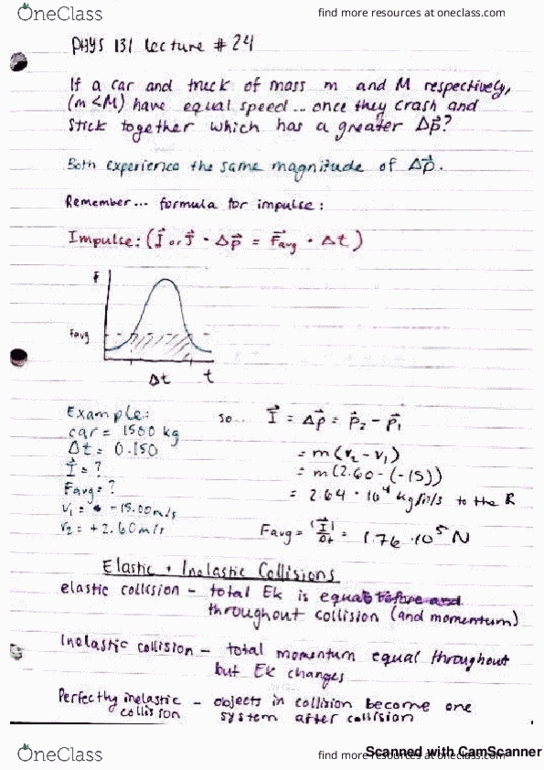 OneClass
find more resources at oneclass.com
PHYS 131 lecture #24
If a car and truck of mass m and M respectively,
(m < M) have equal speed... once they crash and
stick together which has a greater Δp⃗?
Both experience the same magnitude of Δp⃗.
Remember... formula for impulse:
Impulse: (I⃗ or J⃗ = Δp⃗ = F⃗avg · Δt)
F
Favg
Δt t
Example:
car = 1500 kg
Δt = 0.150
I⃗ = ?
Favg = ?
v₁ = -15.00 m/s
v₂ = +2.60 m/s
so... I⃗ = Δp⃗ = p⃗₂ - p⃗₁
= m(v₂ - v₁)
= m(2.60 - (-15))
= 2.64 · 10⁴ kg m/s to the R
Favg = |I⃗|/Δt = 1.76 · 10⁵ N
Elastic + Inelastic Collisions
elastic collision - total Ek is equal before and
throughout collision (and momentum)
Inelastic collision - total momentum equal throughout
but Ek changes
Perfectly inelastic - objects in collision become one
collision system after collision
OneClass
find more resources at oneclass.com
Scanned with CamScanner